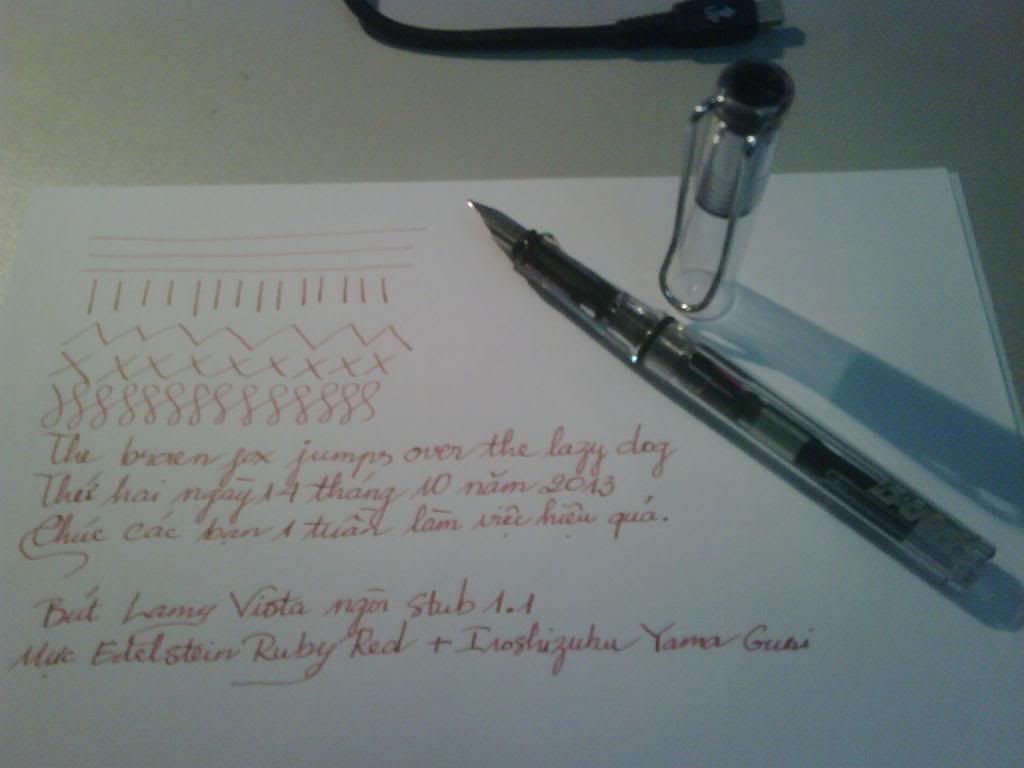 The brown fox jumps over the lazy dog
Thứ hai ngày 14 tháng 10 năm 2013
Chúc các bạn 1 tuần làm việc hiệu quả.
Bút Lamy Vista ngòi stub 1.1
Mực Edelstein Ruby Red + Iroshizuku Yama Guri
LAMY